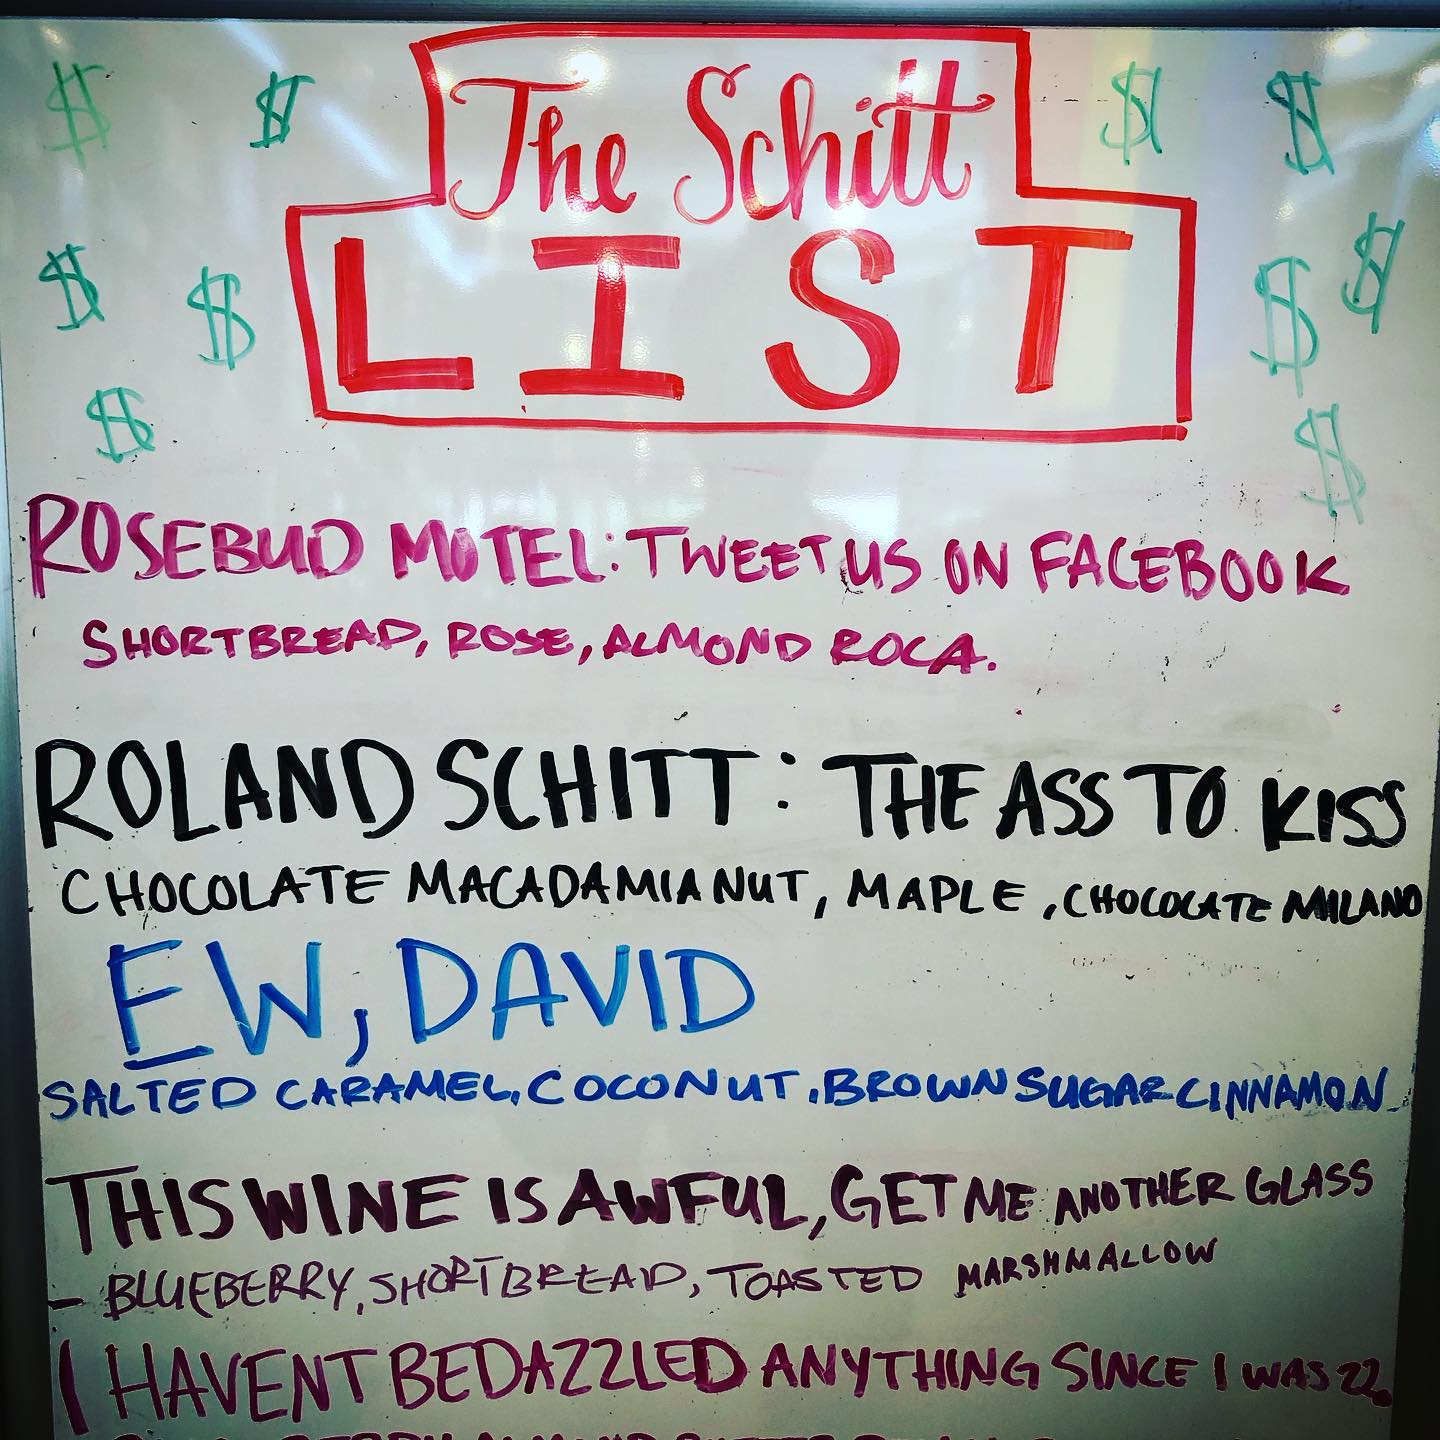 The Schitt
LIST
ROSEBUD MOTEL: TWEET US ON FACEBOOK
SHORTBREAD, ROSE, ALMOND ROCA.
ROLAND SCHITT: THE ASS TO KISS
CHOCOLATE MACADAMIA NUT, MAPLE, CHOCOLATE MILANO
EW, DAVID
SALTED CARAMEL, COCONUT, BROWN SUGAR CINNAMON
THIS WINE IS AWFUL, GET ME ANOTHER GLASS
- BLUEBERRY, SHORTBREAD, TOASTED MARSHMALLOW
I HAVENT BEDAZZLED ANYTHING SINCE I WAS 22.